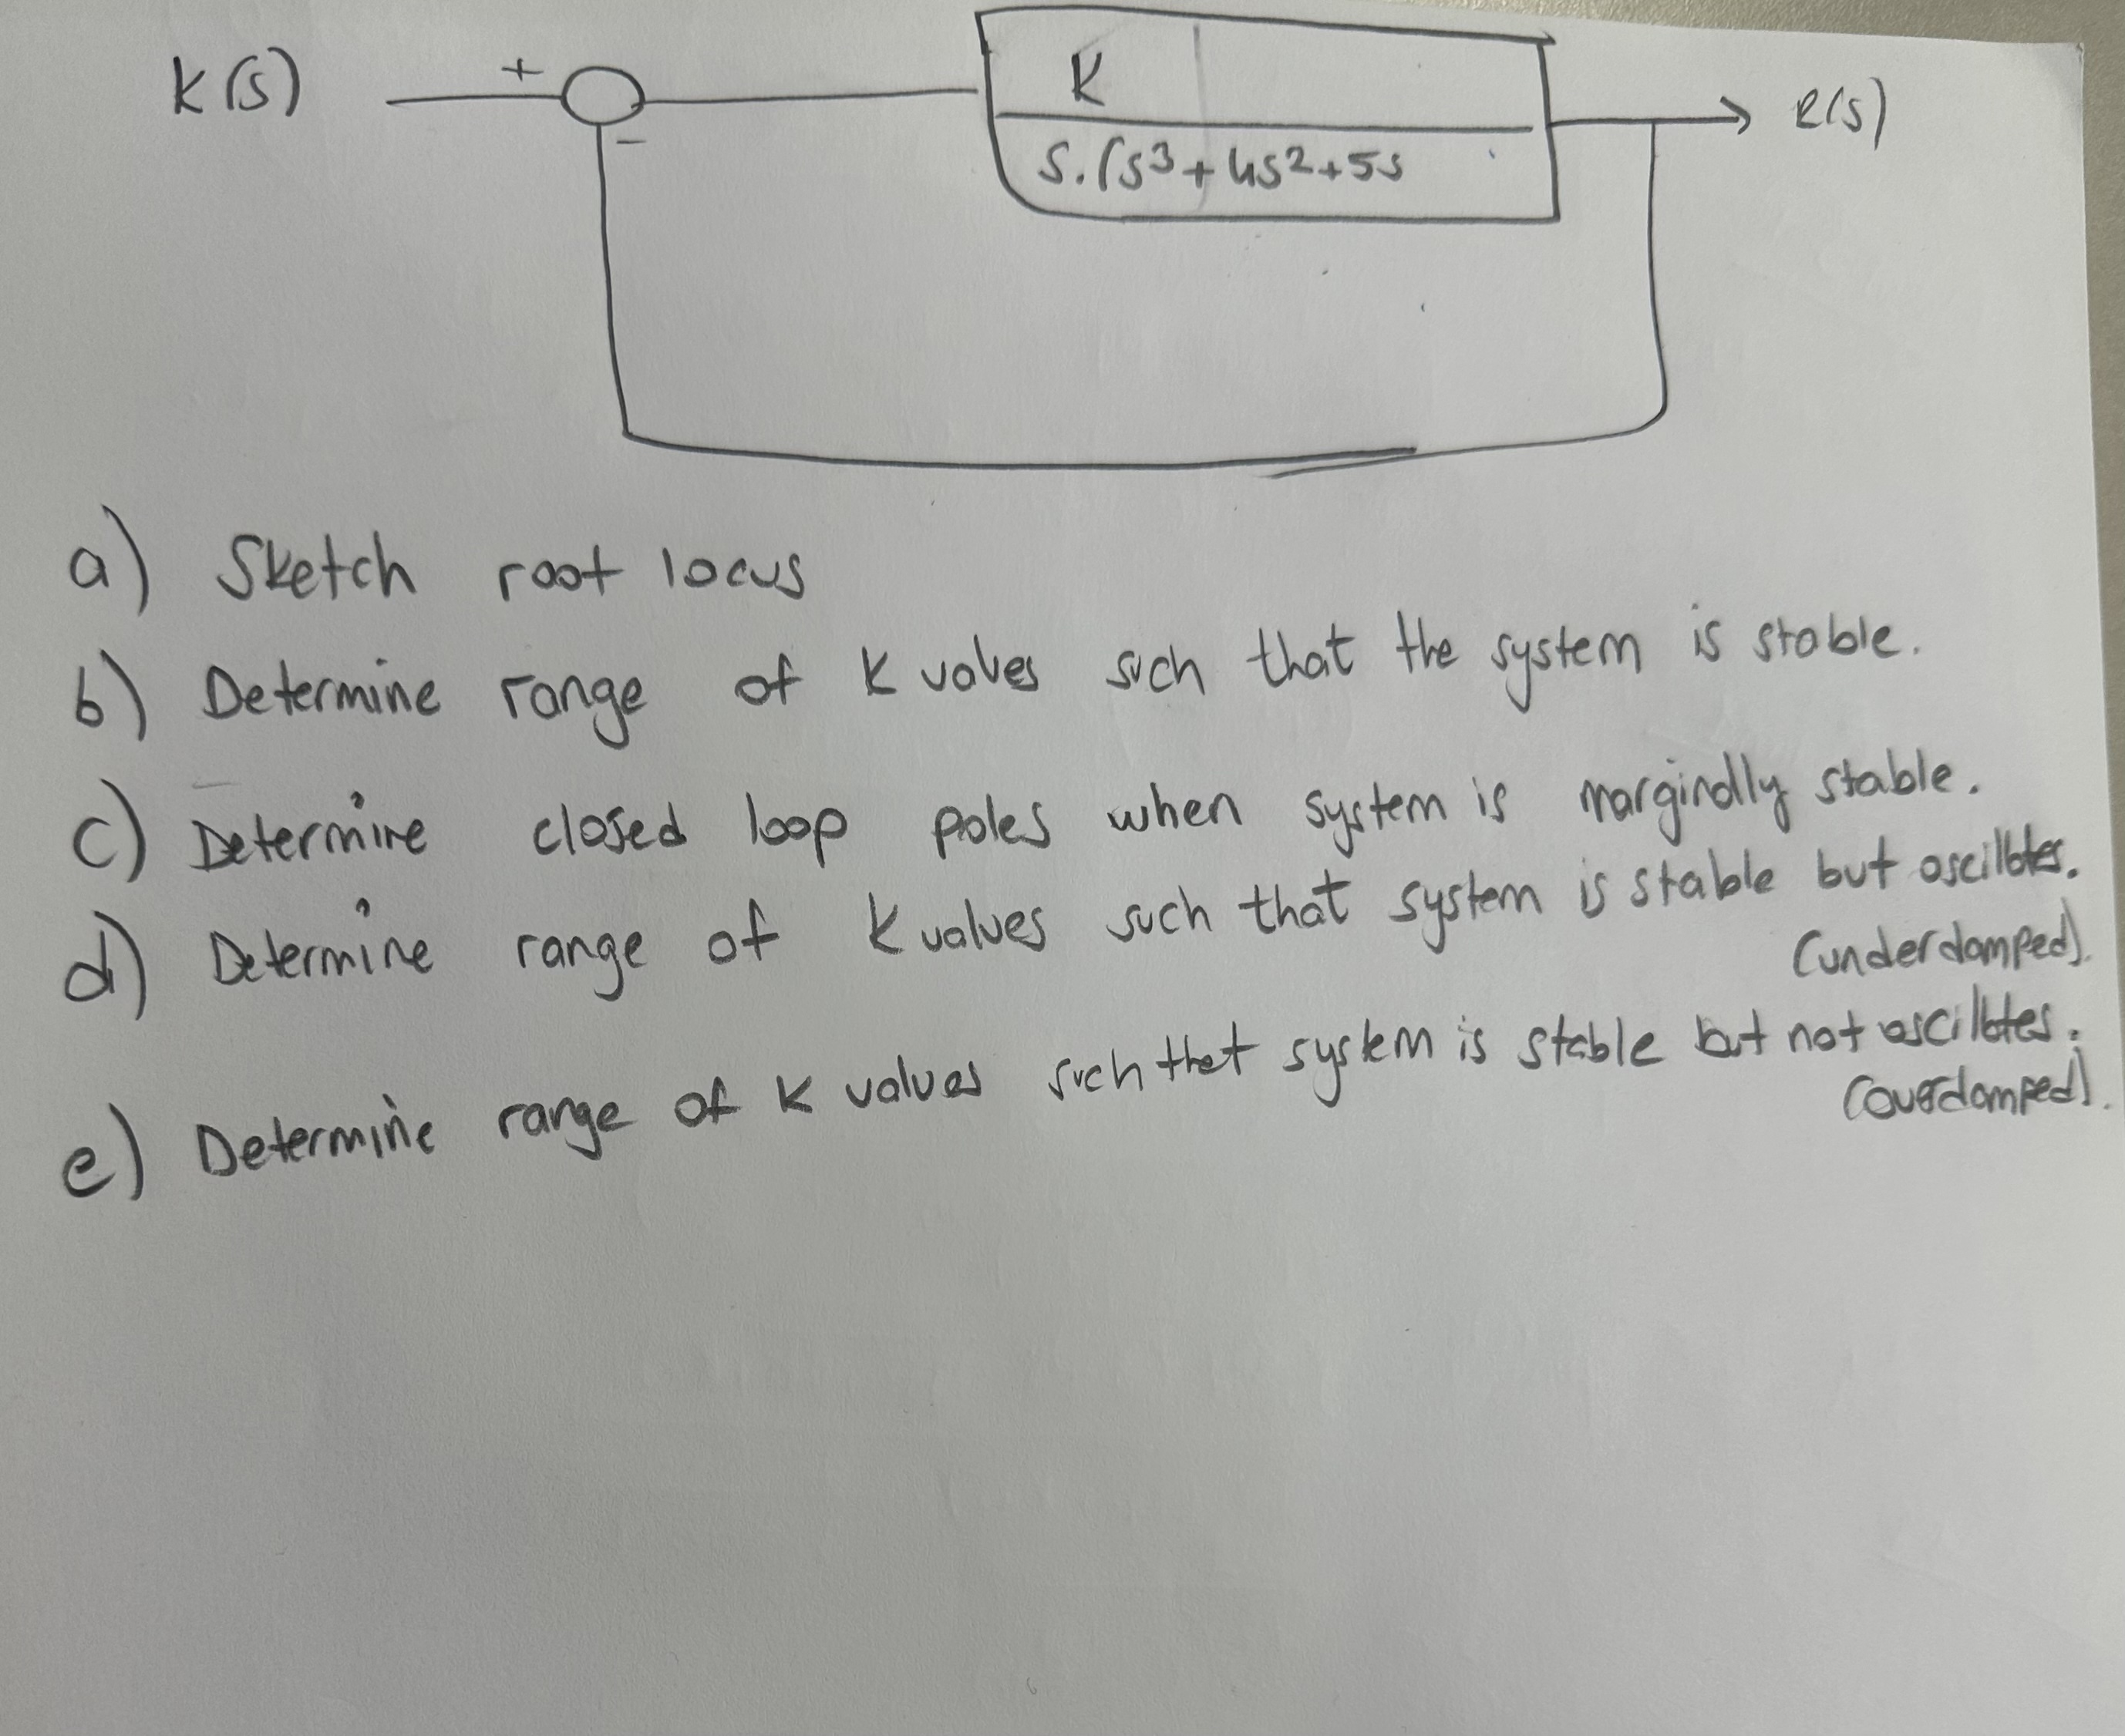 K(s)
+
-
K
s.(s³+4s²+5s
R(s)
a) Sketch root locus
b) Determine range of K values such that the system is stable.
c) Determine closed loop poles when system is marginally stable.
d) Determine range of K values such that system is stable but oscillates.
(underdamped).
e) Determine range of K values such that system is stable but not oscillates.
(overdamped).